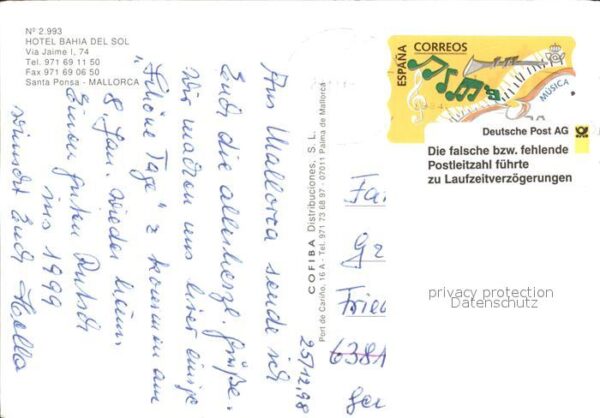 Nº 2.993
HOTEL BAHIA DEL SOL
Via Jaime I, 74
Tel. 971 69 11 50
Fax 971 69 06 50
Santa Ponsa - MALLORCA
Aus Mallorca sende ich
Euch die allerherzl. Grüße.
Wir machen uns hier einige
"schöne Tage" u. kommen am
8. Jan. wieder heim.
Einen guten Rutsch
ins 1999
wünscht Euch Hella
25/12.98
COFIBA Distribuciones, S. L.
Port de Cariño, 16 A - Tel. 971 73 68 97 - 07011 Palma de Mallorca
ESPAÑA
CORREOS
MÚSICA
Deutsche Post AG
Die falsche bzw. fehlende
Postleitzahl führte
zu Laufzeitverzögerungen
Fa
Gr
Fried
638
Ger
privacy protection
Datenschutz